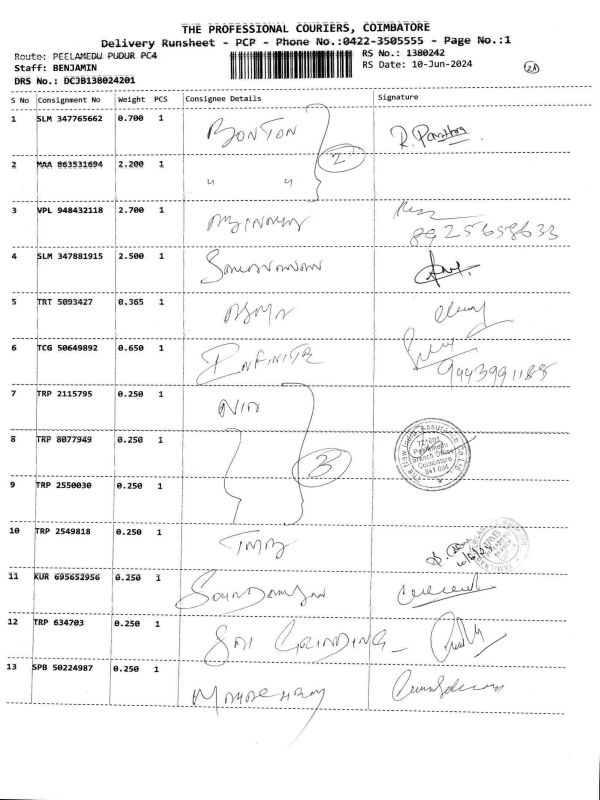 THE PROFESSIONAL COURIERS, COIMBATORE
Delivery Runsheet - PCP - Phone No.:0422-3505555 - Page No.:1
Route: PEELAMEDU PUDUR PC4
RS No.: 1380242
Staff: BENJAMIN
RS Date: 10-Jun-2024
DRS No.: DCJB138024201
S No Consignment No Weight PCS Consignee Details Signature
1 SLM 347765662 0.700 1 BONTON
2
2 MAA 863531694 2.200 1 " "
3 VPL 948432118 2.700 1
8925658633
4 SLM 347881915 2.500 1 Saravanan
5 TRT 5093427 0.365 1
6 TCG 50649892 0.650 1 INFINITE
9443991188
7 TRP 2115795 0.250 1 NIA
8 TRP 8077949 0.250 1
3
The New India Assurance Co Ltd
721001
Peelamedu
Branch Office
Coimbatore
641 004
9 TRP 2550030 0.250 1
10 TRP 2549818 0.250 1 TMB
11 KUR 695652956 0.250 1
12 TRP 634703 0.250 1 SRI GRINDING
13 SPB 50224987 0.250 1